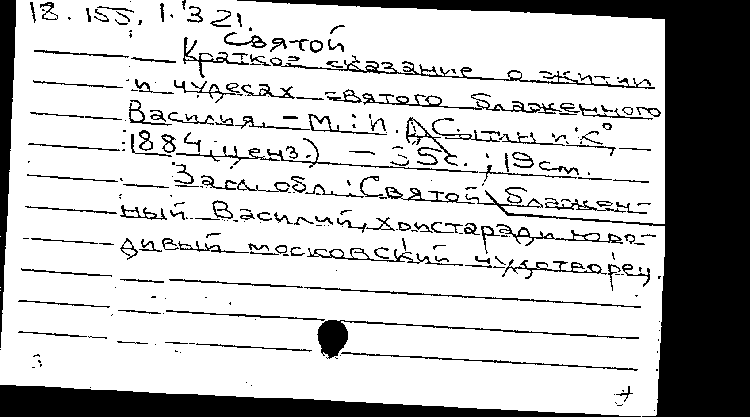 18.155.1.321.
Святой
Краткое сказание о житии
и чудесах святого блаженного
Василия. – М.: И. Д. Сытин и К°,
1884 (ценз.) – 35с.; 19см.
Загл. обл.: Святой блажен-
ный Василий, христаради юро-
дивый московский чудотворец.
3